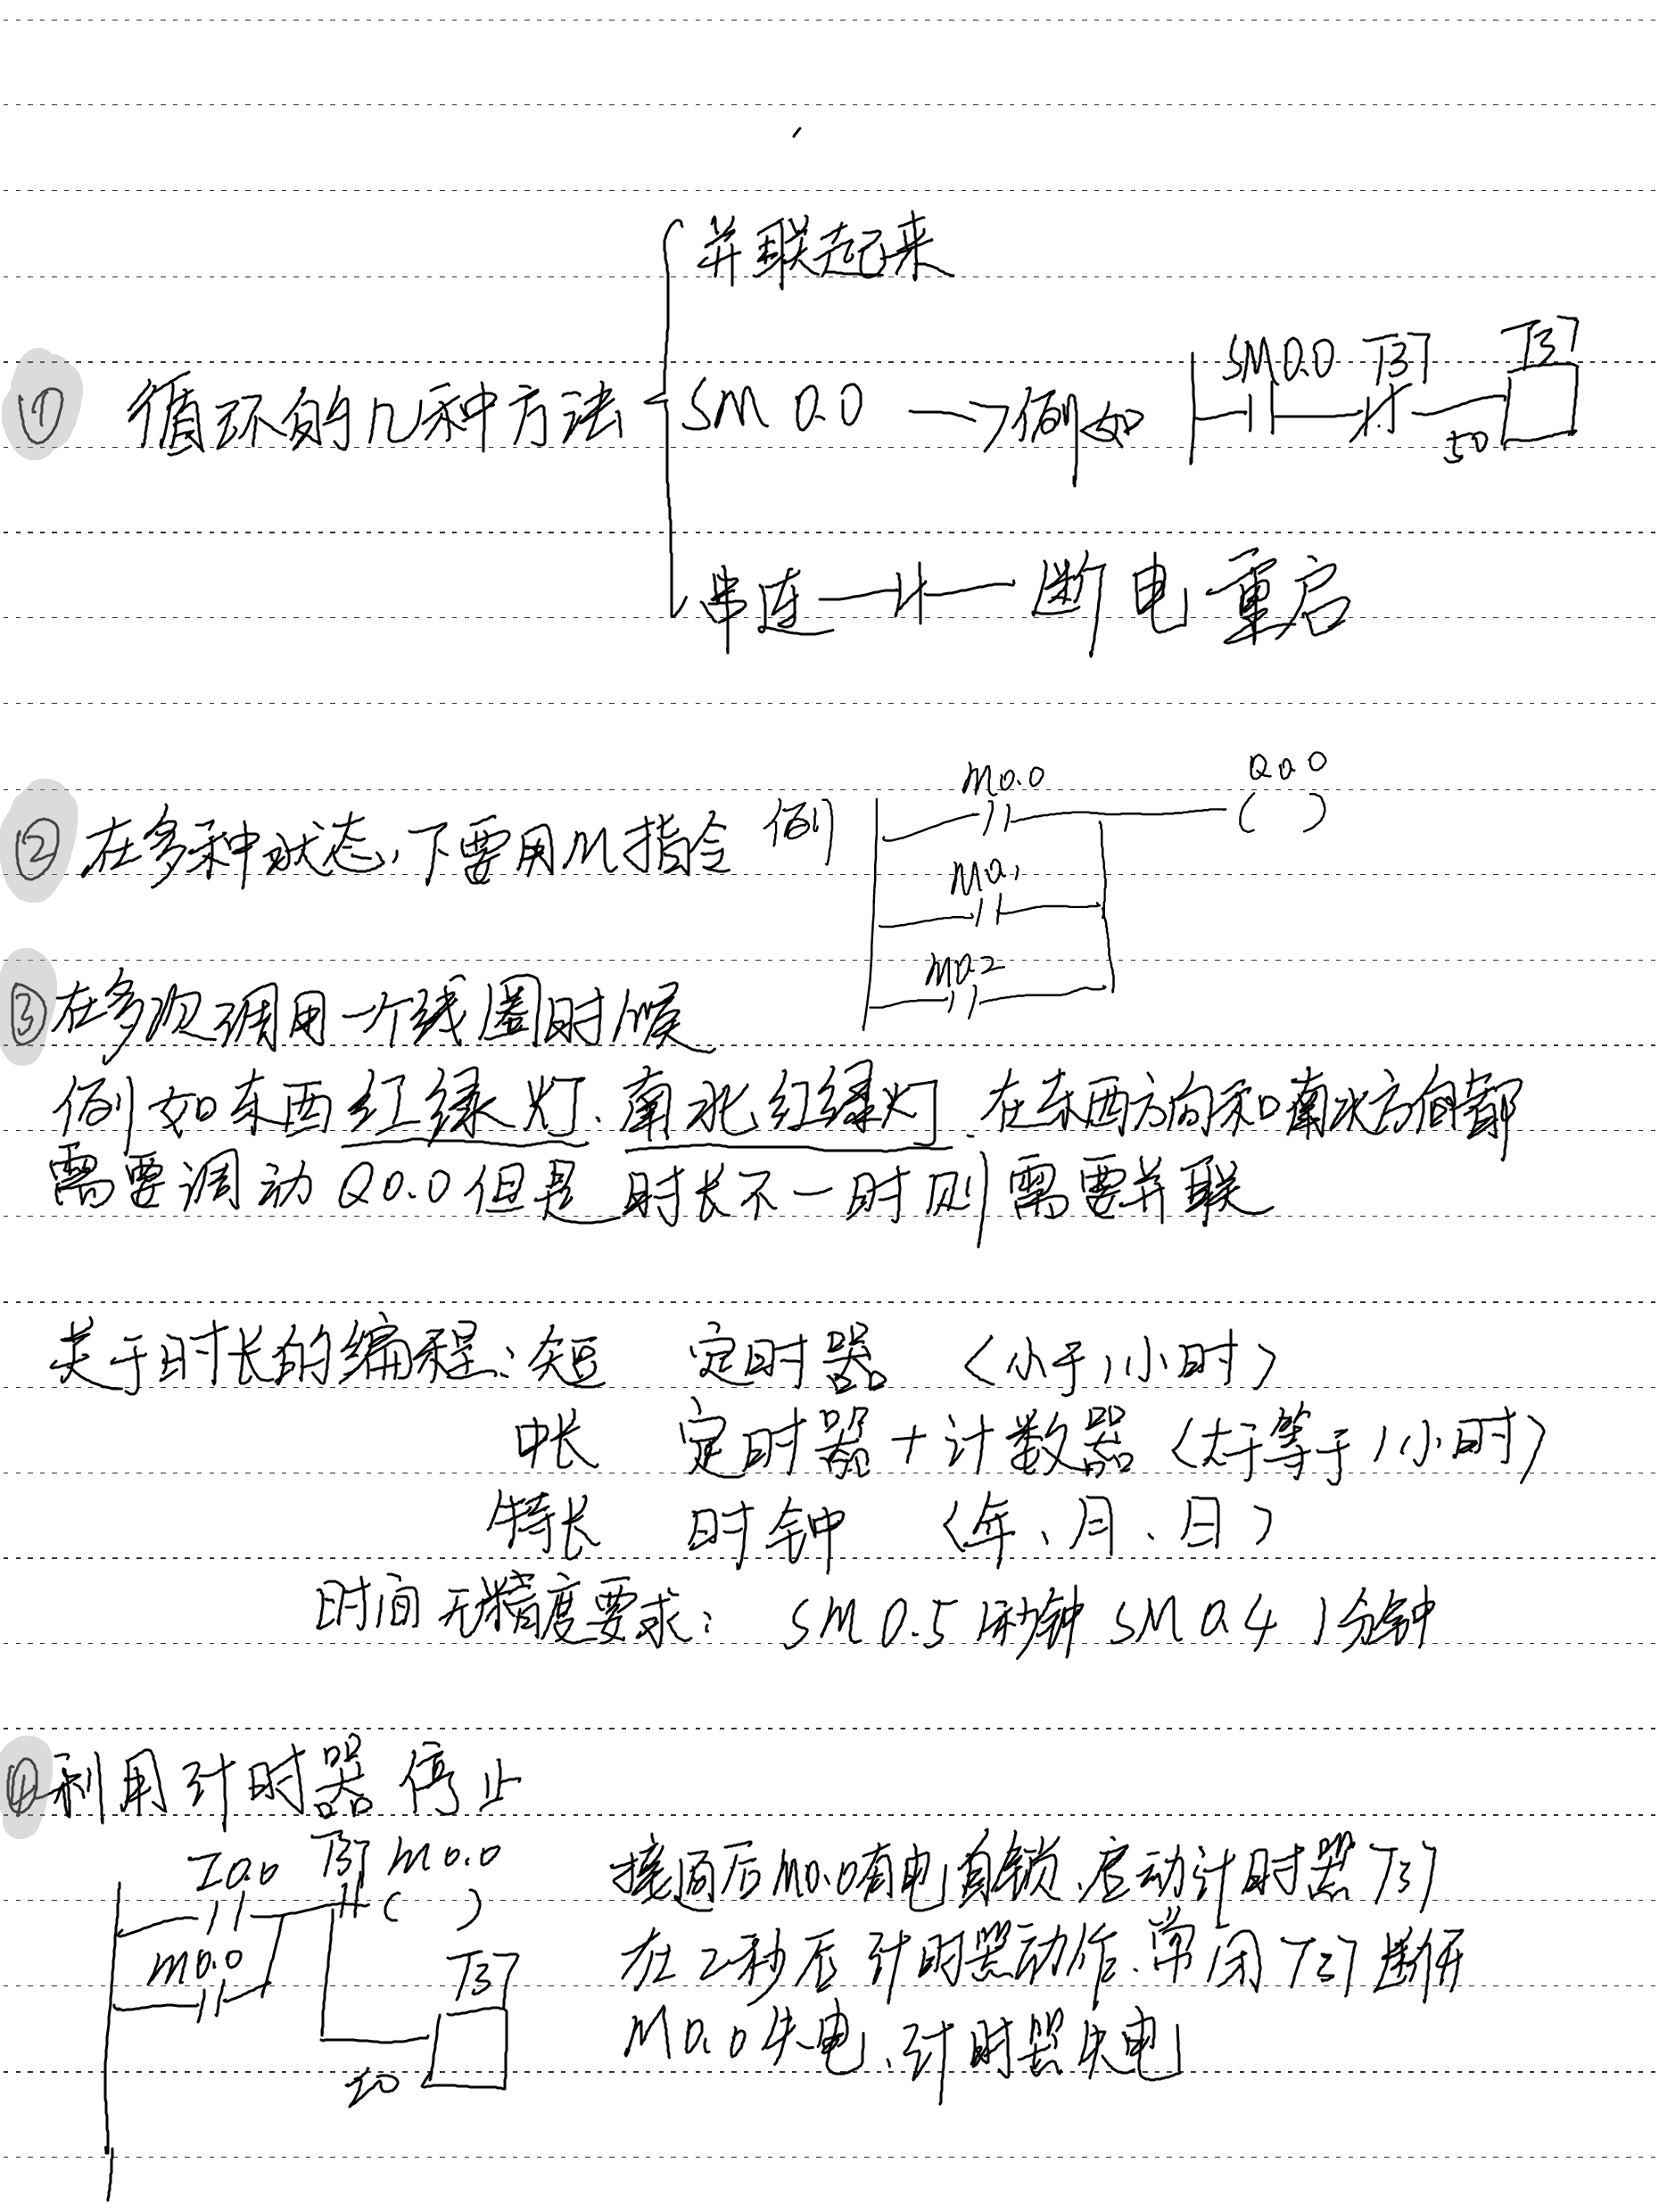 并联起来
SM0.0 T37 T37
① 循环的几种方法 SM 0.0 → 例如
50
串连 断电重启
M0.0 Q0.0
② 在多种状态,下要用M指令 例
M0.1
M0.2
③ 在多次调用一个线圈时候
例如东西红绿灯、南北红绿灯、在东西方向和南北方向都
需要调动Q0.0但是时长不一时则需要并联
关于时长的编程:短 定时器 (小于1小时)
中长 定时器+计数器 (大于等于1小时)
特长 时钟 (年、月、日)
时间无精度要求: SM0.5 1秒钟 SM0.4 1分钟
④ 利用计时器停止
I0.0 T37 M0.0
接通后M0.0有电自锁、启动计时器T37
M0.0 T37
在2秒后计时器动作、常闭T37断开
M0.0失电、计时器失电
20